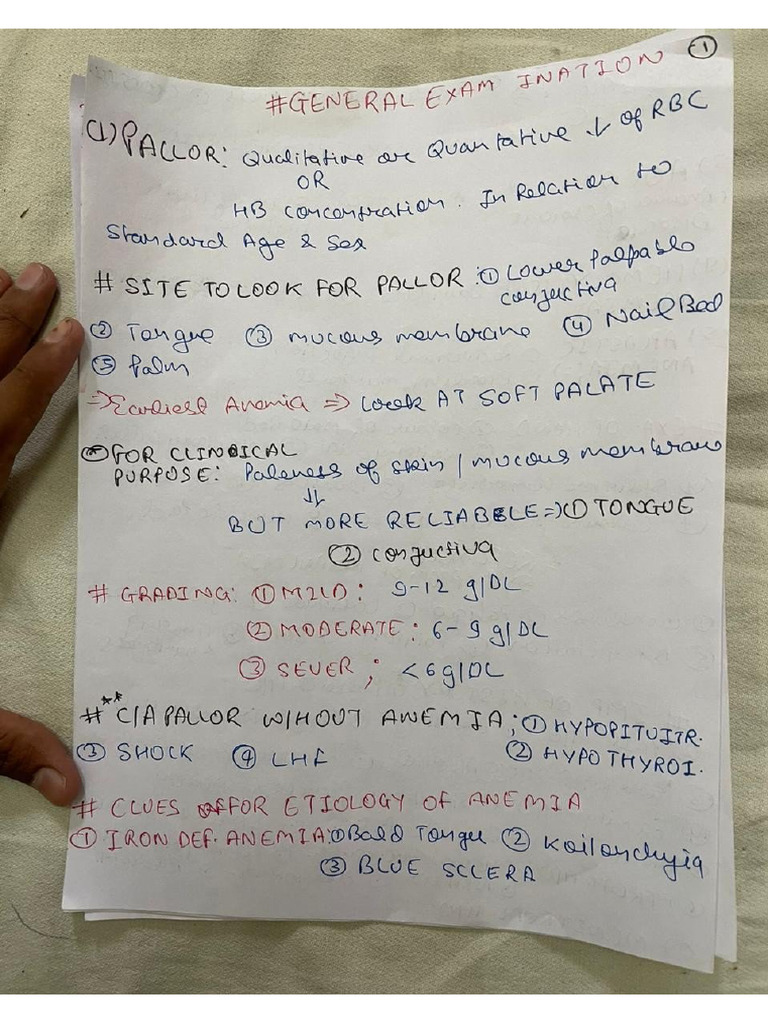 #GENERAL EXAMINATION ①
(1) PALLOR: Qualitative or Quantative ↓ of RBC
OR
HB concentration. In Relation to
Standard Age & Sex
# SITE TO LOOK FOR PALLOR: ① Lower Palpable
conjuctiva
② Tongue ③ mucous membrane ④ Nail Bed
⑤ Palm
⇒ Earliest Anemia ⇒ Look AT SOFT PALATE
FOR CLINICAL
PURPOSE: Paleness of skin / mucous membrane
⇓
BUT MORE RELIABLE ⇒ ① TONGUE
② conjuctiva
# GRADING: ① MILD: 9-12 g/DL
② MODERATE: 6-9 g/DL
③ SEVER; <6 g/DL
#** C/A PALLOR W/HOUT ANEMIA; ① HYPOPITUITR.
③ SHOCK ④ LHF ② HYPOTHYROI.
# CLUES FOR ETIOLOGY OF ANEMIA
① IRON DEF. ANEMIA: ① Bald Tongue ② Koilonchyia
③ BLUE SCLERA